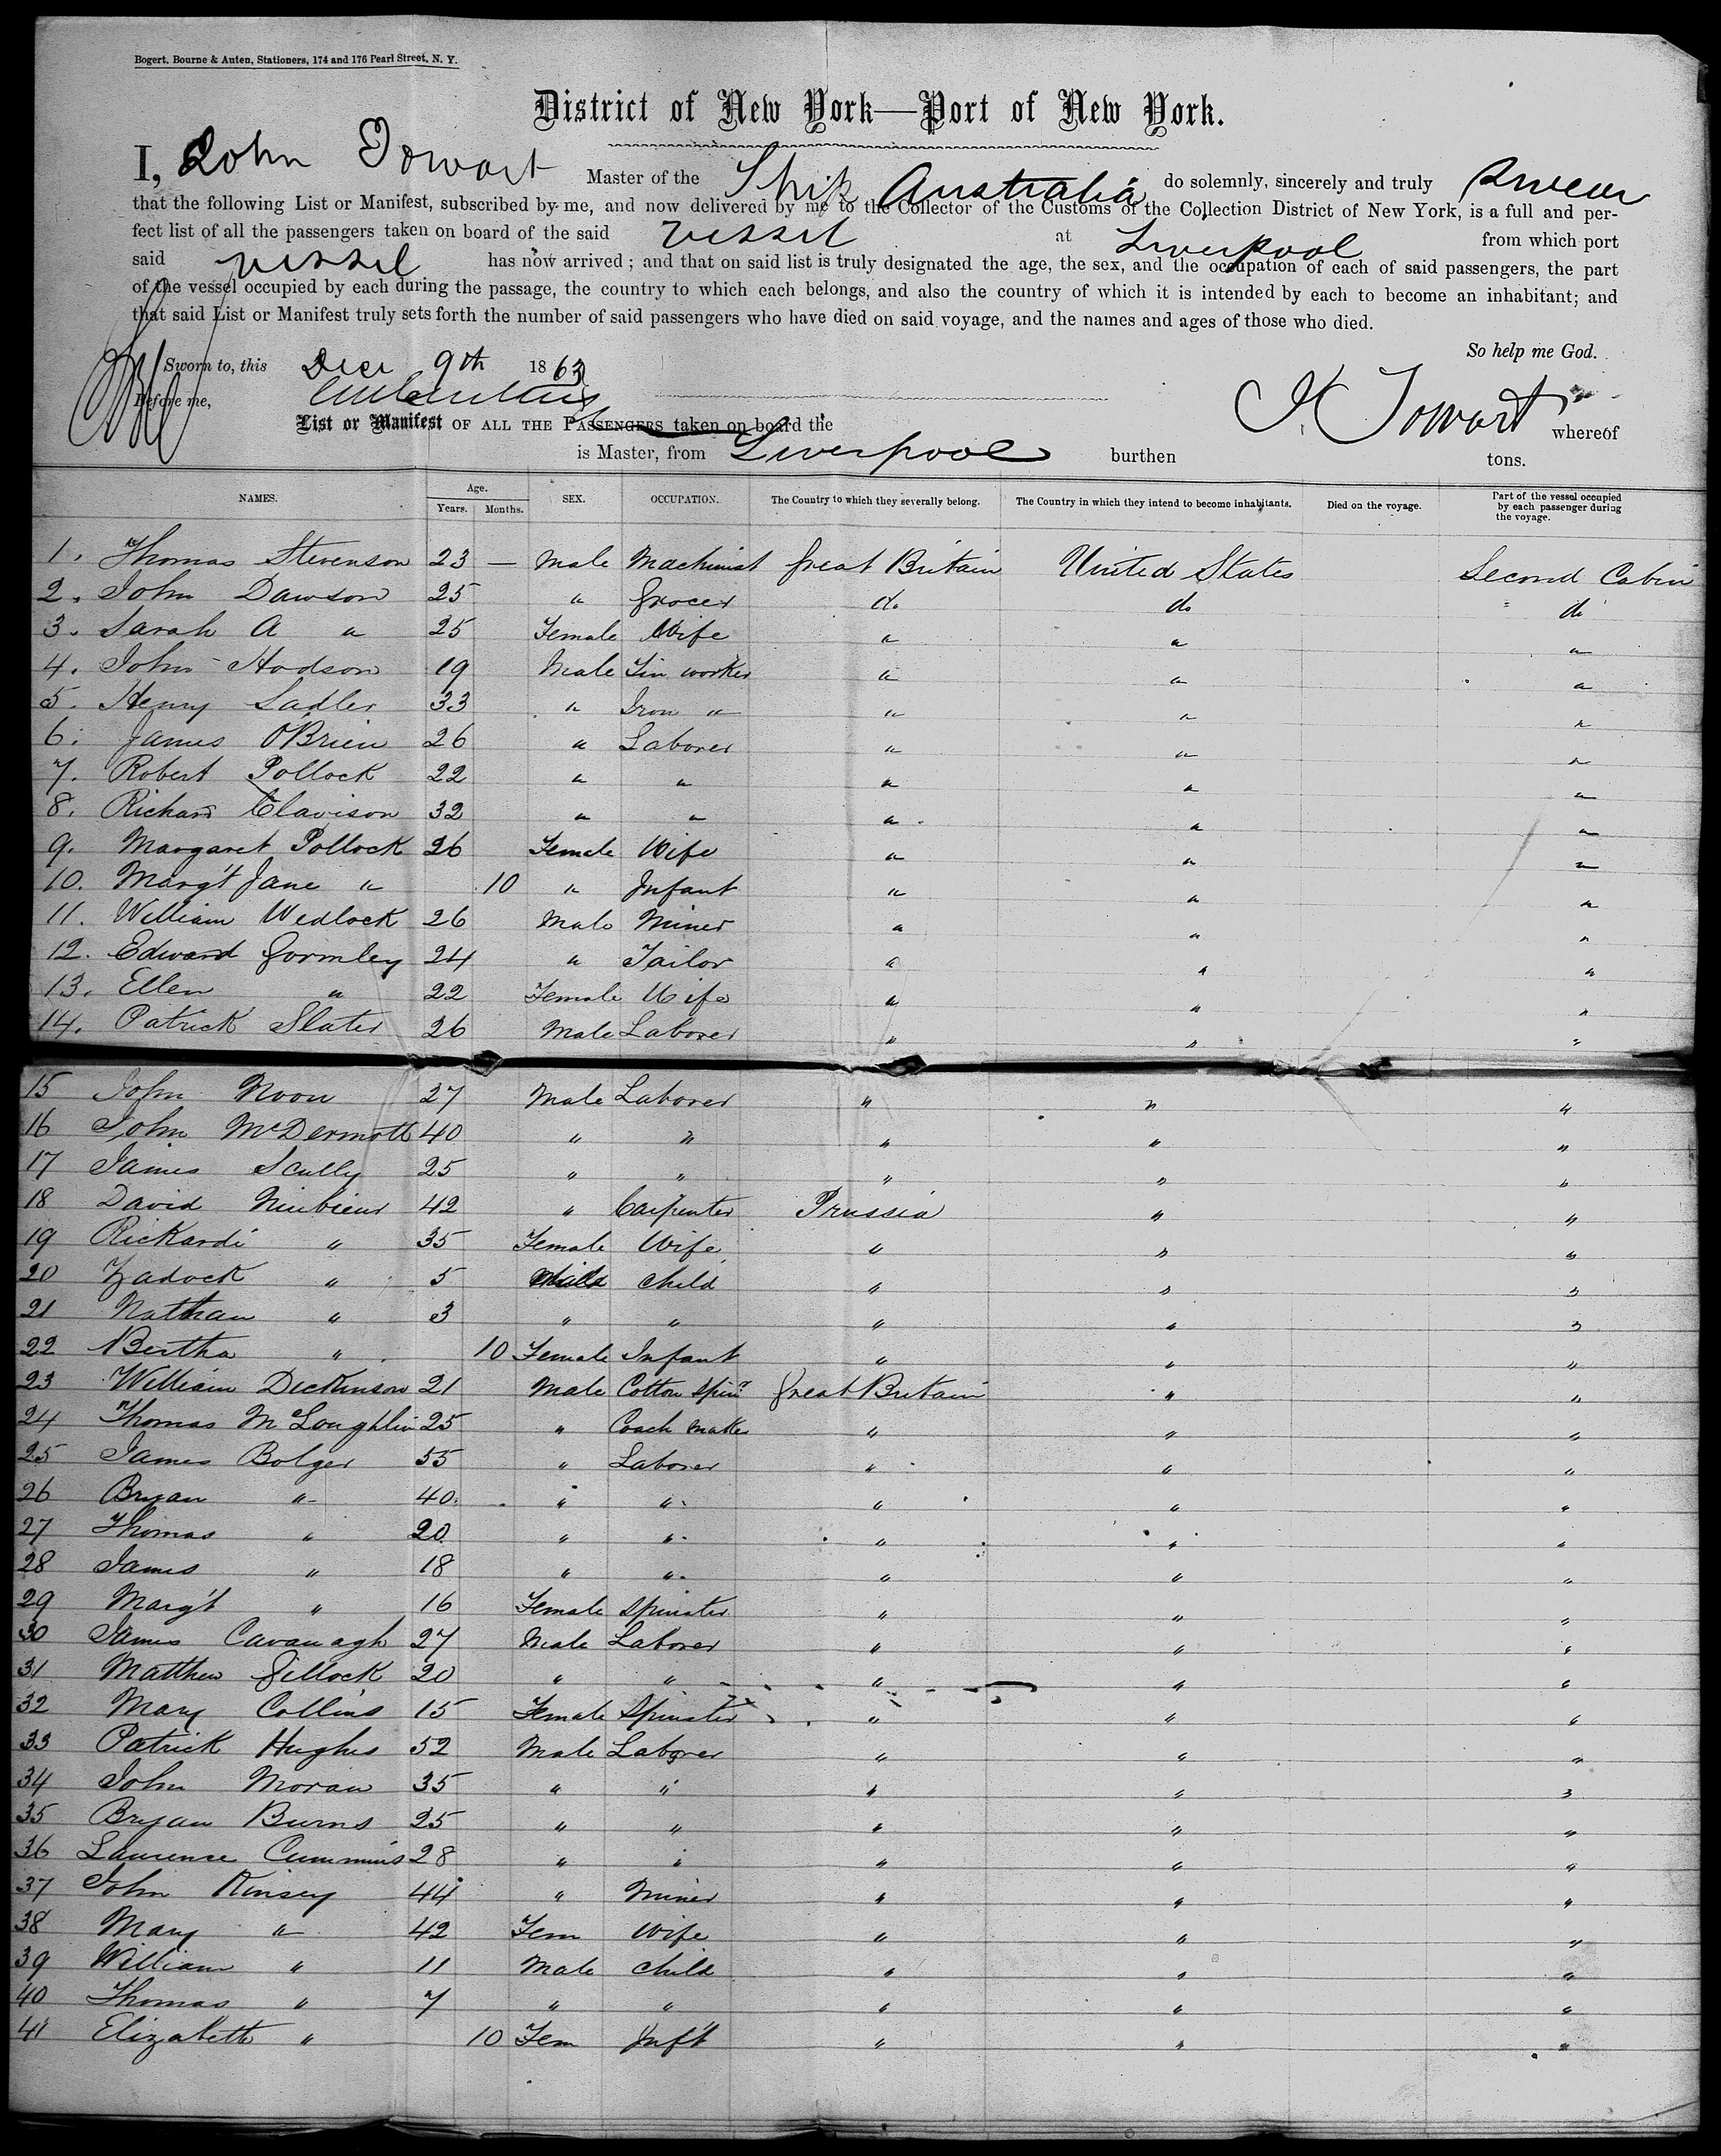 Bogert, Bourne & Auten, Stationers, 174 and 176 Pearl Street, N. Y.
District of New York—Port of New York.
I, John Towart Master of the Ship Australia do solemnly, sincerely and truly swear
that the following List or Manifest, subscribed by me, and now delivered by me to the Collector of the Customs of the Collection District of New York, is a full and per-
fect list of all the passengers taken on board of the said vessel at Liverpool from which port
said vessel has now arrived; and that on said list is truly designated the age, the sex, and the occupation of each of said passengers, the part
of the vessel occupied by each during the passage, the country to which each belongs, and also the country of which it is intended by each to become an inhabitant; and
that said List or Manifest truly sets forth the number of said passengers who have died on said voyage, and the names and ages of those who died.
So help me God.
Sworn to, this Dec 9th 1863
Before me, J. Towart
List or Manifest OF ALL THE PASSENGERS taken on board the whereof
is Master, from Liverpool burthen tons.
NAMES. Age. Years. Months. SEX. OCCUPATION. The Country to which they severally belong. The Country in which they intend to become inhabitants. Died on the voyage. Part of the vessel occupied by each passenger during the voyage.
1. Thomas Stevenson 23 — Male Machinist Great Britain United States Second Cabin
2. John Dawson 25 " Grocer do do do
3. Sarah A " 25 Female Wife " " "
4. John Hodson 19 Male Tin worker " " "
5. Henry Sadler 33 " Iron " " " "
6. James O'Brien 26 " Laborer " " "
7. Robert Pollock 22 " " " " "
8. Richard Clavison 32 " " " " "
9. Margaret Pollock 26 Female Wife " " "
10. Marg't Jane " 10 " Infant " " "
11. William Wedlock 26 Male Miner " " "
12. Edward Gormley 24 " Tailor " " "
13. Ellen " 22 Female Wife " " "
14. Patrick Slater 26 Male Laborer " " "
15 John Noon 27 Male Laborer " " "
16 John McDermott 40 " " " " "
17 James Scully 25 " " " " "
18 David 42 " Carpenter Prussia " "
19 Rickardi " 35 Female Wife " " "
20 Zadock " 5 Male child " " "
21 Nathan " 3 " " " " "
22 Bertha " 10 Female Infant " " "
23 William Dickinson 21 Male Cotton Spinr Great Britain " "
24 Thomas McLoughlin 25 " Coach maker " " "
25 James Bolger 55 " Laborer " " "
26 Bryan " 40 " " " " "
27 Thomas " 20 " " " " "
28 James " 18 " " " " "
29 Marg't " 16 Female Spinster " " "
30 James Cavanagh 27 Male Laborer " " "
31 Matthew Gillock 20 " " " " "
32 Mary Collins 15 Female Spinster " " "
33 Patrick Hughes 52 Male Laborer " " "
34 John Moran 35 " " " " "
35 Bryan Burns 25 " " " " "
36 Laurence Cummins 28 " " " " "
37 John Kinsey 44 " Miner " " "
38 Mary " 42 Fem Wife " " "
39 William " 11 Male child " " "
40 Thomas " 7 " " " " "
41 Elizabeth " 10 Fem Inf't " " "